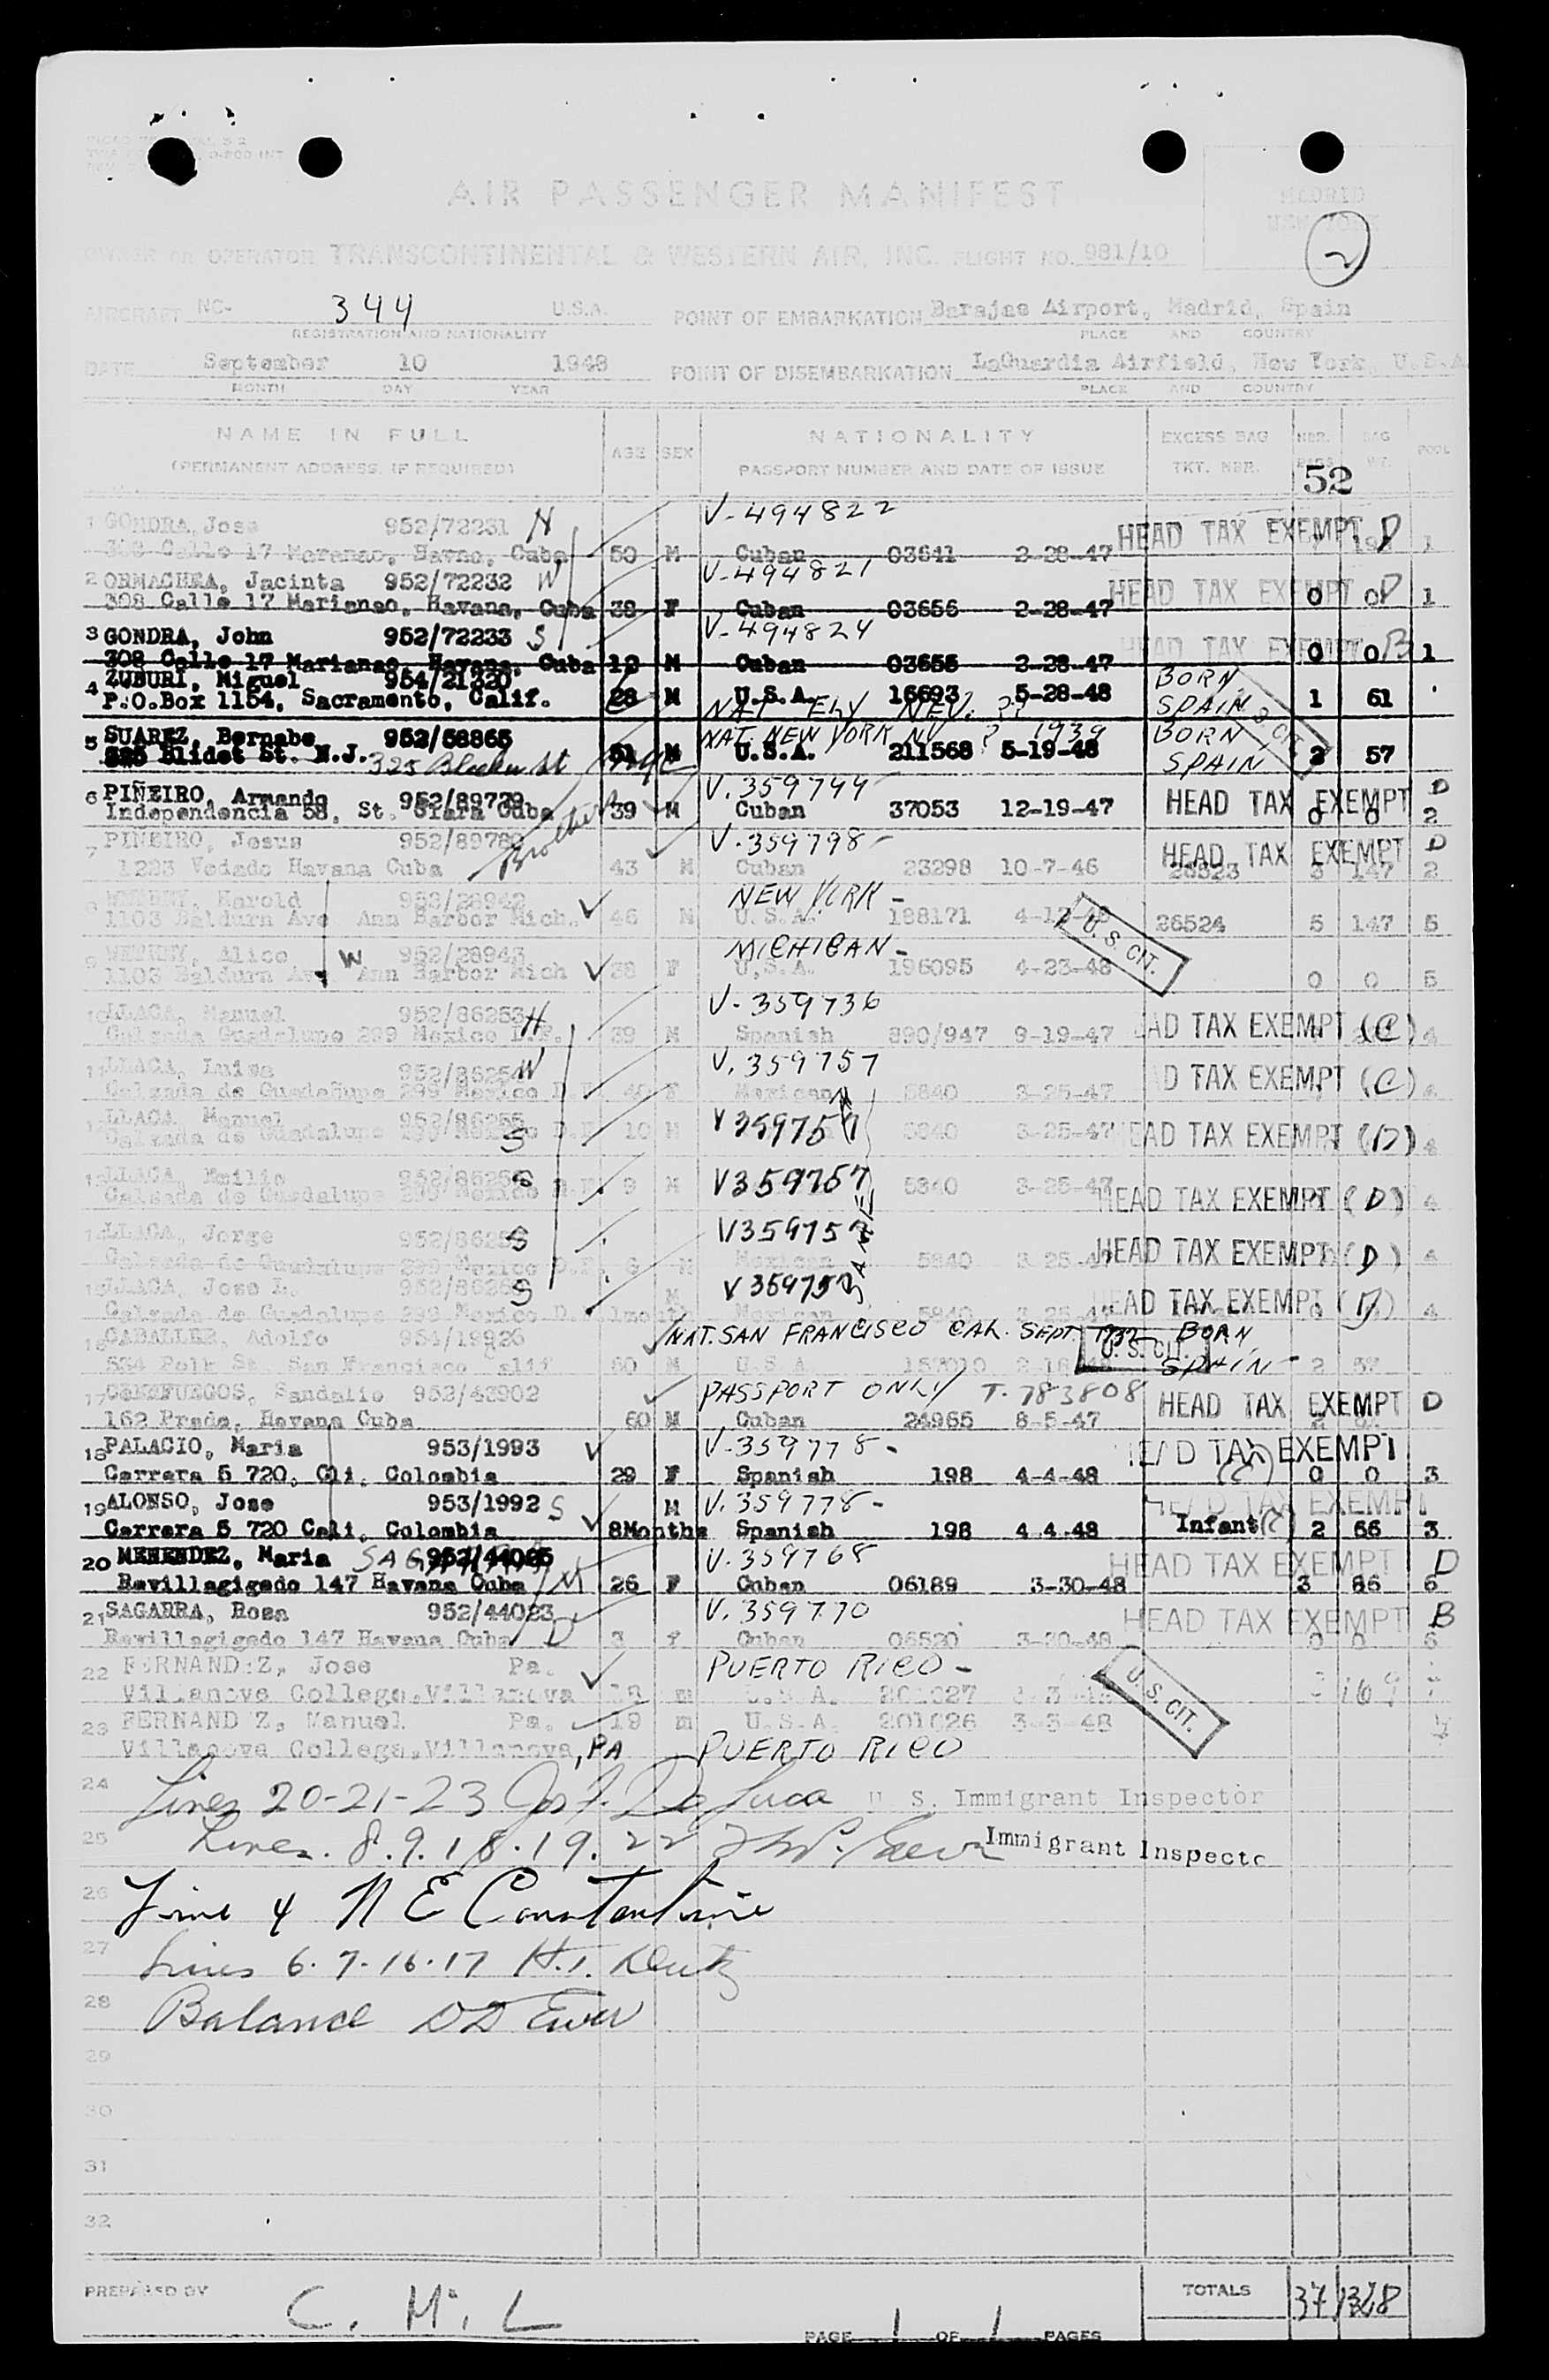 AIR PASSENGER MANIFEST
MADRID
NEW YORK
2
OWNER OR OPERATOR TRANSCONTINENTAL & WESTERN AIR, INC. FLIGHT NO. 981/10
AIRCRAFT NC- 344 U.S.A. POINT OF EMBARKATION Barajas Airport, Madrid, Spain
REGISTRATION AND NATIONALITY PLACE AND COUNTRY
DATE September 10 1948 POINT OF DISEMBARKATION LaGuardia Airfield, New York, U.S.A.
MONTH DAY YEAR PLACE AND COUNTRY
NAME IN FULL AGE SEX NATIONALITY EXCESS BAG NBR. BAG POOL
(PERMANENT ADDRESS, IF REQUIRED) PASSPORT NUMBER AND DATE OF ISSUE TKT. NBR. WT.
52
1 GONDRA, Jose 952/72231 H V-494822 HEAD TAX EXEMPT D
308 Calle 17 Havno, Cuba 50 M Cuban 03641 2-28-47 1
2 ORMACHEA, Jacinta 952/72232 W V-494821 HEAD TAX EXEMPT D
308 Calle 17 Marianao, Havana, Cuba 38 F Cuban 03656 2-28-47 0 0 1
3 GONDRA, John 952/72233 S V-494824 HEAD TAX EXEMPT B
308 Calle 17 Marianao, Havana, Cuba M Cuban 03655 2-28-47 0 0 1
4 ZUBURI, Miguel 954/21320 BORN
P.O.Box 1154, Sacramento, Calif. 28 M U.S.A. 16693 5-28-48 SPAIN 1 61
NAT ELY NEV. ??
5 SUAREZ, Bernabe 952/58865 NAT. NEW YORK NY ? 1939 BORN
Blidet St. N.J. 325 Bleeker St NYC 51 M U.S.A. 211568 5-19-48 SPAIN 2 57
6 PIÑEIRO, Armando 952/89779 V.359744 HEAD TAX EXEMPT D
Independencia 58, St. Clara Cuba 39 M Cuban 37053 12-19-47 0 0 2
7 PIÑEIRO, Jesus 952/89780 Brother V.359798 HEAD TAX EXEMPT D
1223 Vedado Havana Cuba 43 M Cuban 23298 10-7-46 26523 3 147 2
8 Harold 952/28942 NEW YORK -
1103 Baldurn Ave Ann Harbor Mich. 46 M U.S.A. 188171 26524 5 147 5
U.S. CIT.
9 Alice W 952/28943 MICHIGAN -
1103 Baldurn Ave Ann Harbor Mich 38 F U.S.A. 196095 4-23-48 0 0 5
10 LLACA, Manuel 952/86253 H V-359736
Calzada Guadalupe 299 Mexico D.F. 39 M Spanish 890/947 9-19-47 HEAD TAX EXEMPT (C) 4
11 LLACA, Luisa 952/86254 W V.359757
Calzada de Guadalupe 299 Mexico D.F. 40 F Mexican 5840 3-25-47 HEAD TAX EXEMPT (C) 4
12 LLACA, Manuel 952/86255 S V359757
Calzada de Guadalupe 299 Mexico D.F. 10 M 5840 3-25-47 HEAD TAX EXEMPT (D) 4
13 LLACA, Emilio S V359757
Calzada de Guadalupe 299 Mexico D.F. 9 M 5840 3-25-47 HEAD TAX EXEMPT (D) 4
14 LLACA, Jorge S V359757
Calzada de Guadalupe Mexico D.F. 6 M Mexican 5840 3-25-47 HEAD TAX EXEMPT (D) 4
15 LLACA, Jose L. S M V359757
Calzada de Guadalupe 299 Mexico D. Mexican 5840 3-25-47 HEAD TAX EXEMPT (D) 4
16 CABALLER, Adolfo 954/19926 NAT. SAN FRANCISCO CAL. SEPT. 1932 BORN
534 Polk St. San Francisco Calif 60 M U.S.A. U.S. CIT. SPAIN 2
17 Sandalio 952/43902 PASSPORT ONLY T-783808 HEAD TAX EXEMPT D
162 Prado, Havana Cuba 60 M Cuban 24965 8-5-47
18 PALACIO, Maria 953/1993 V-359778 - HEAD TAX EXEMPT
Carrera 5 720, Cli, Colombia 29 F Spanish 198 4-4-48 (C) 0 0 3
19 ALONSO, Jose 953/1992 S M V.359778 - HEAD TAX EXEMPT
Carrera 5 720 Cali, Colombia 8Months Spanish 198 4.4.48 Infant (C) 2 66 3
20 MENENDEZ, Maria V.359768 HEAD TAX EXEMPT D
Revillagigedo 147 Havana Cuba M 26 F Cuban 06189 3-30-48 3 86 6
21 SAGARRA, Rosa 952/44023 V.359770 HEAD TAX EXEMPT B
Revillagigedo 147 Havana Cuba D 3 f Cuban 06520 3-30-48 0 0 6
22 FERNANDEZ, Jose Pa. PUERTO RICO -
Villanova College, Villanova 18 m U.S.A. 201027 169 7
U.S. CIT.
23 FERNANDEZ, Manuel Pa. 19 m U.S.A. 201026 3-3-48
Villanova College, Villanova, PA PUERTO RICO
24 Lines 20-21-23 Jos. F. De Luca U. S. Immigrant Inspector
25 Lines. 8.9.18.19.22 Immigrant Inspector
26 Line 4 N E Constantine
27 Lines 6.7.16.17
28 Balance
29
30
31
32
TOTALS 37 1328
PREPARED BY C. M. L
PAGE 1 OF 1 PAGES